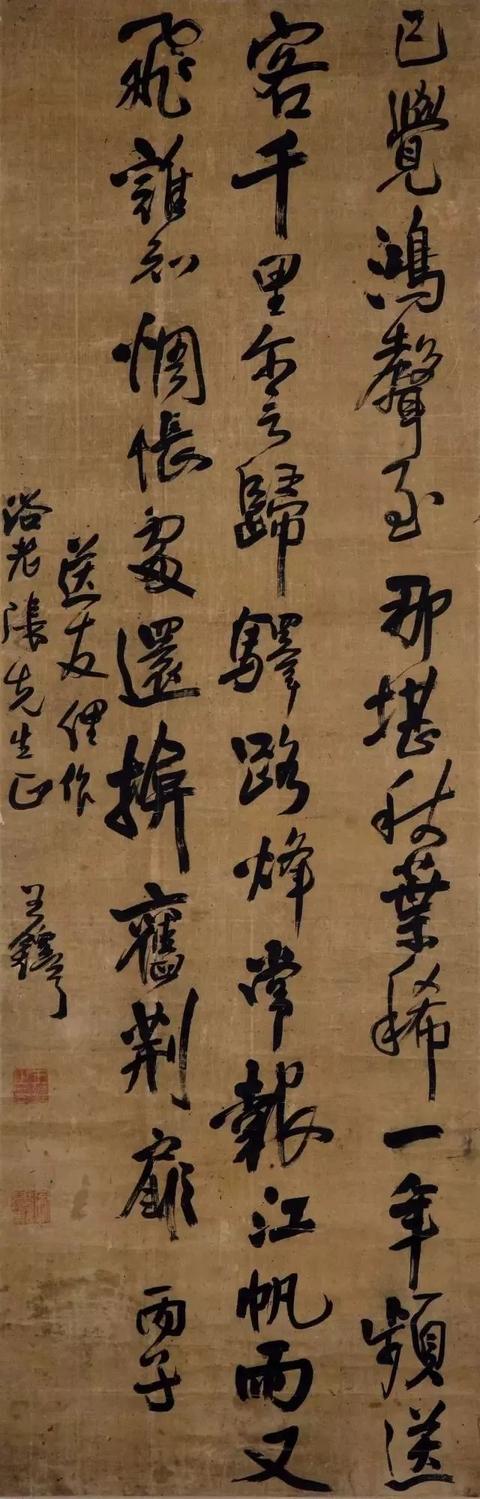 已覺鴻聲至那堪秋葉稀一年頻送
客千里尒言歸驛路烽常報江帆雨又
飛誰知惆悵處還揜舊荊扉 丙子
送友俚作
老張先生正 王鐸